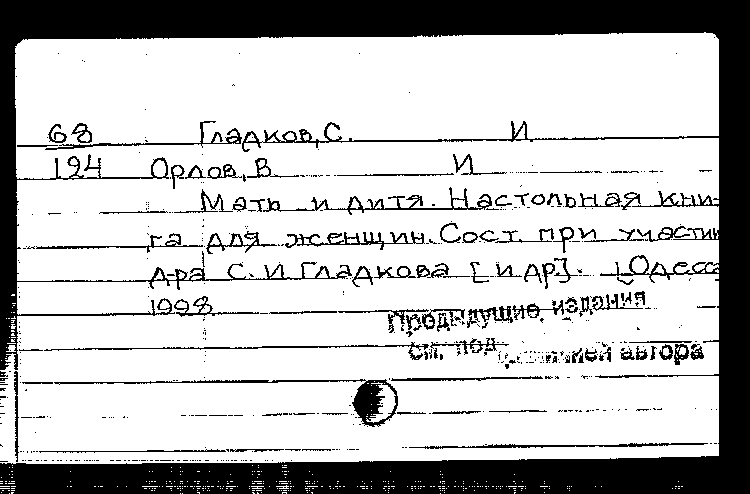 68 Гладков, С. И
124 Орлов, В И
Мать и дитя. Настольная кни-
га для женщин. Сост. при участии
д-ра С. И Гладкова [и др]. Одесса
1998
Предыдущие издания
см. под автора